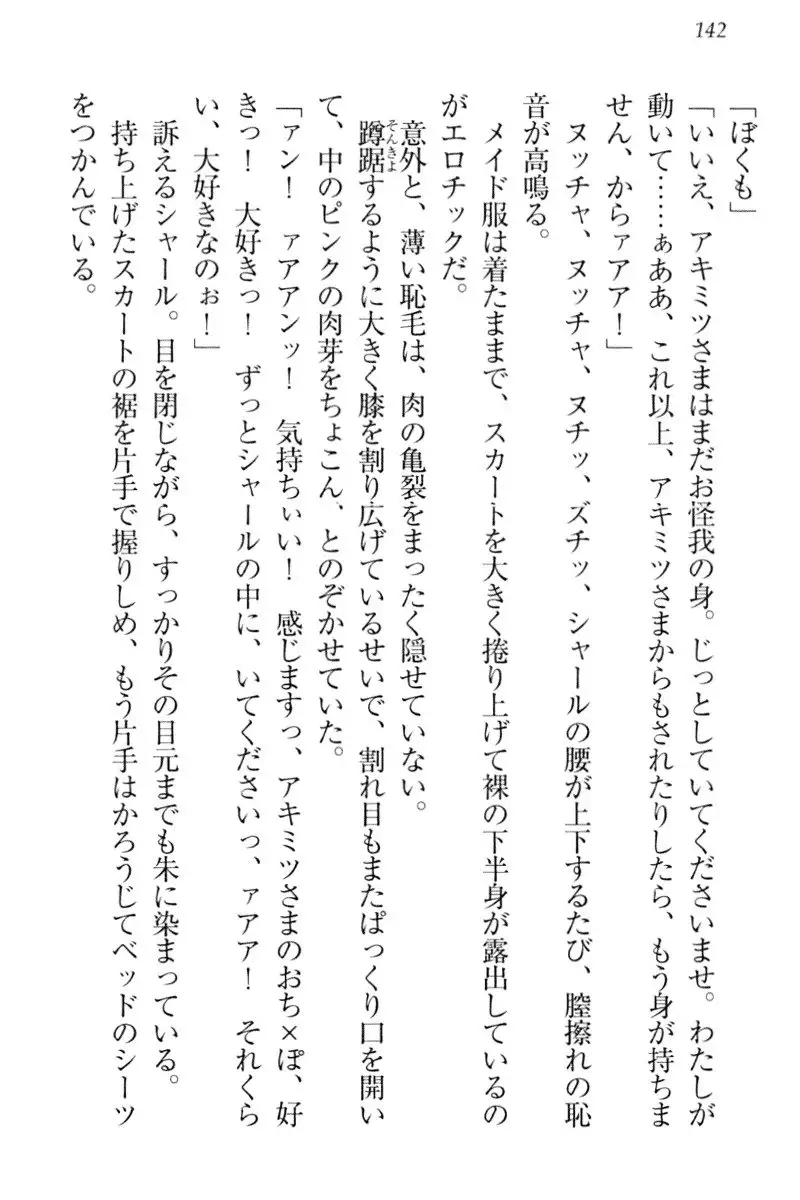 142
「ぼくも」
「いいえ、アキミツさまはまだお怪我の身。じっとしていてくださいませ。わたしが
動いて……ぁああ、これ以上、アキミツさまからもされたりしたら、もう身が持ちま
せん、からァアア！」
ヌッチャ、ヌッチャ、ヌチッ、ズチッ、シャールの腰が上下するたび、膣擦れの恥
音が高鳴る。
メイド服は着たままで、スカートを大きく捲り上げて裸の下半身が露出しているの
がエロチックだ。
意外と、薄い恥毛は、肉の亀裂をまったく隠せていない。
蹲踞するように大きく膝を割り広げているせいで、割れ目もまたぱっくり口を開い
そんきよ
て、中のピンクの肉芽をちょこん、とのぞかせていた。
「ァン！　ァアアンッ！　気持ちぃい！　感じますっ、アキミツさまのおち×ぽ、好
きっ！　大好きっ！　ずっとシャールの中に、いてくださいっ、ァアア！　それくら
い、大好きなのぉ！」
訴えるシャール。目を閉じながら、すっかりその目元までも朱に染まっている。
持ち上げたスカートの裾を片手で握りしめ、もう片手はかろうじてベッドのシーツ
をつかんでいる。